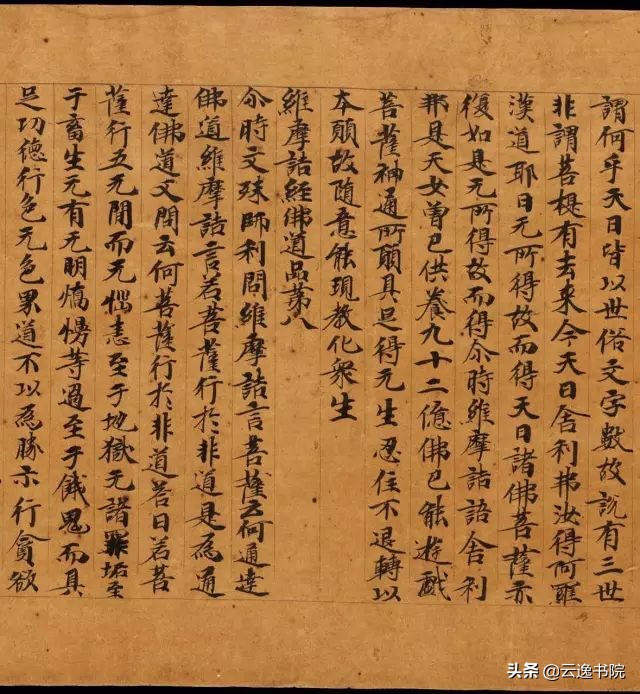 謂何乎天曰皆以世俗文字數故說有三世
非謂菩提有去來今天曰舍利弗汝得阿羅
漢道耶曰无所得故而得天曰諸佛菩薩亦
復如是无所得故而得尒時維摩詰語舍利
弗是天女曾已供養九十二億佛已能遊戲
菩薩神通所願具足得无生忍住不退轉以
本願故随意能現教化衆生
維摩詰經佛道品第八
尒時文殊師利問維摩詰言菩薩云何通達
佛道維摩詰言若菩薩行於非道是為通
達佛道又問云何菩薩行於非道荅曰若菩
薩行五无間而无惱恚至于地獄无諸罪垢至
于畜生无有无明憍慢等過至于餓鬼而具
足功德行色无色界道不以為勝示行貪欲
头条@云逸书院